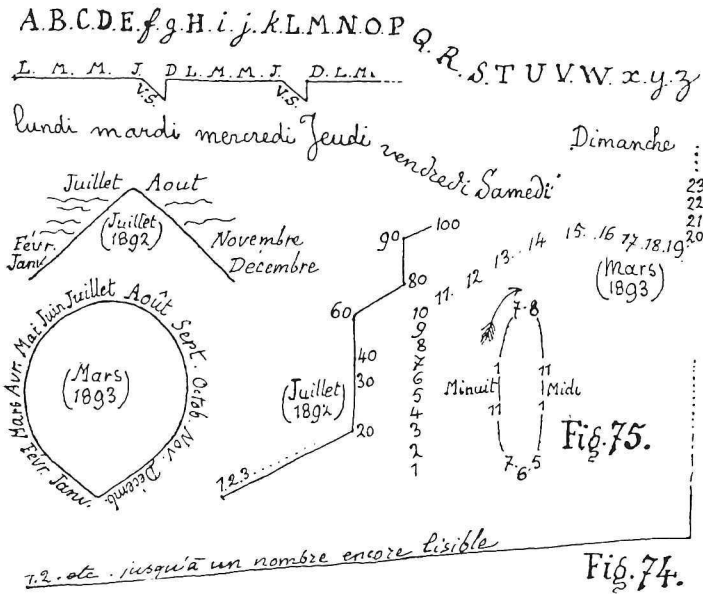 A.B.C.D.E.f.g.H.i.j.k.L.M.N.O.P Q.R.S.T U V.W.x.y.z
L. M. M. J. V.S. D L. M. M. J. V.S. D. L. M.
lundi mardi mercredi Jeudi vendredi Samedi Dimanche
Juillet Aout
(Juillet 1892)
Févr. Janv. Novembre
Décembre
Janv. Févr. Mars Avr. Mai Juin Juillet Août Sept. Octob. Nov. Décemb.
(Mars 1893)
1.2.3........
20
30
40
60
80
90
100
(Juillet 1892)
1
2
3
4
5
6
7
8
9
10
11. 12 13.. 14 15. .16 17.18.19.
20
21
22
23
(Mars 1893)
7.8
1 11
Minuit Midi
11 1
7.6.5
Fig.75.
1.2. etc. jusqu'à un nombre encore lisible
Fig.74.